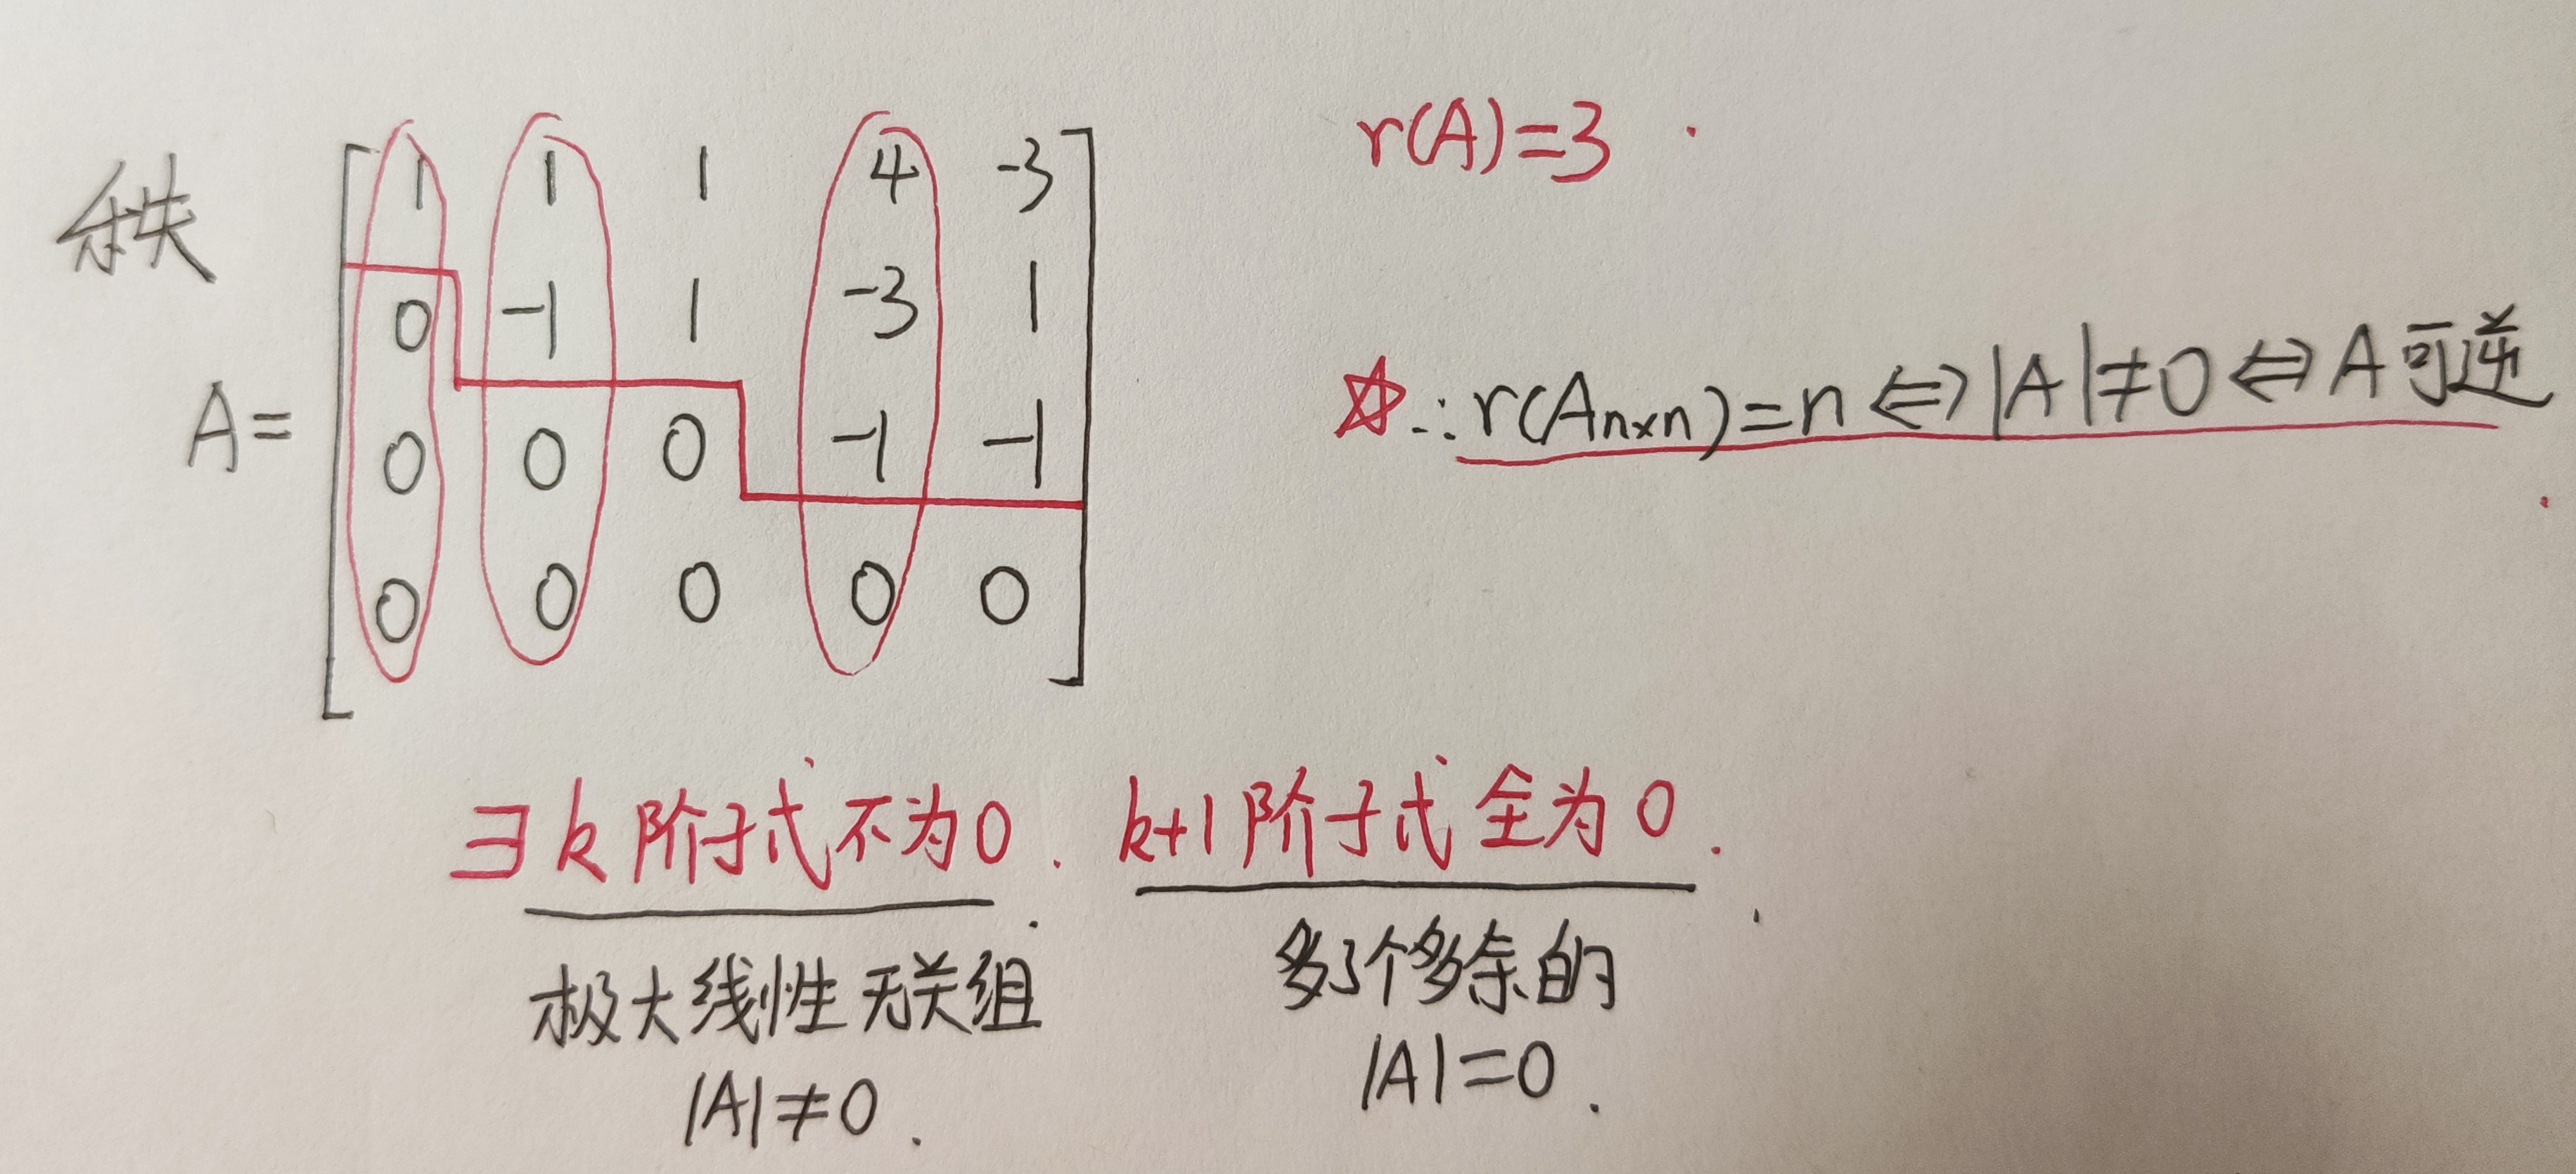 秩
A=
1 1 1 4 -3
0 -1 1 -3 1
0 0 0 -1 -1
0 0 0 0 0
r(A)=3
☆∴r(Aₙₓₙ)=n⇔|A|≠0⇔A可逆
∃k阶子式不为0. k+1阶子式全为0.
极大线性无关组
|A|≠0.
多了个多余的
|A|=0.